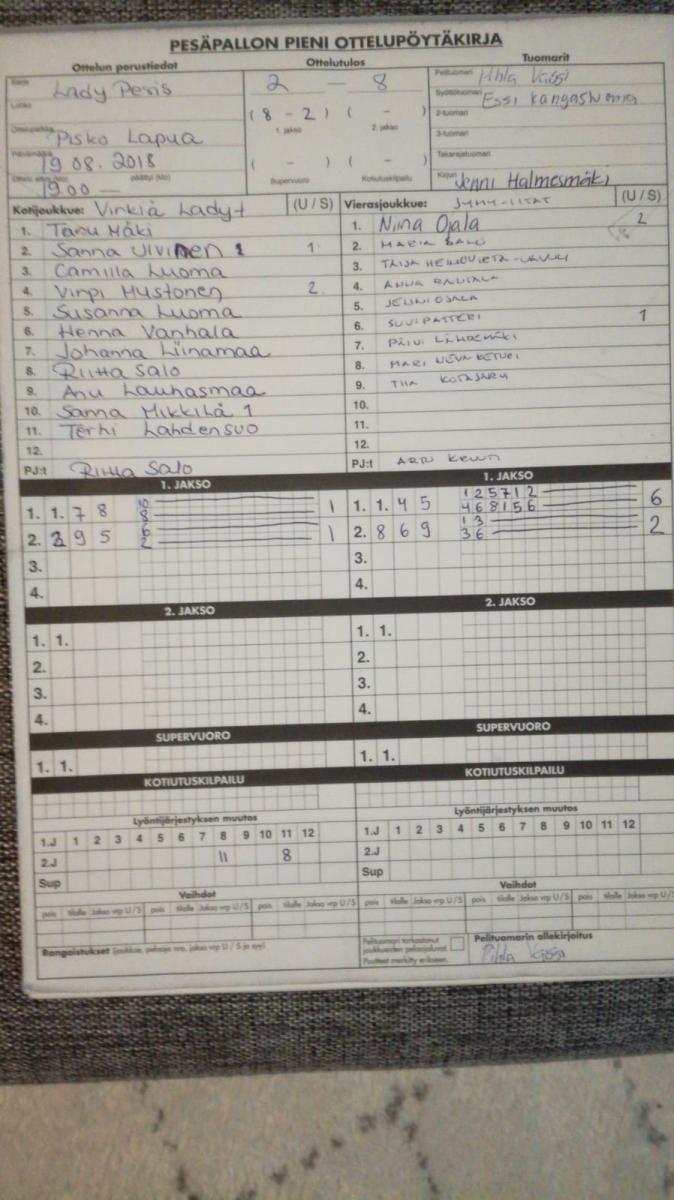 PESÄPALLON PIENI OTTELUPÖYTÄKIRJA
Ottelun perustiedot Ottelutulos Tuomarit
Sarja Lady Pesis 2 - 8 Pelituomari
Lohko Syöttötuomari Essi Kangasluoma
(8 - 2) ( - ) 2-tuomari
Ottelupaikka Pisko Lapua 1. jakso 2. jakso 3-tuomari
Päivämäärä 19 08. 2018 ( - ) ( - ) Takarajatuomari
19.00 päättyi (klo) Supervuoro Kotiutuskilpailu Kirjuri Jenni Halmesmäki
Kotijoukkue: Virkiä Ladyt (U / S) Vierasjoukkue: (U / S)
1. Tanu Mäki 1. Niina Ojala 2
2. Sanna Ulvinen 1 2. MARIA SALO
3. Camilla Luoma 3.
4. Virpi Hystonen 2 4. ANNA RAUTALA
5. Susanna Luoma 5. JENNI OJALA
6. Henna Vanhala 6. SUVI PATTERI 1
7. Johanna Liinamaa 7. PÄIVI LÄHDEMÄKI
8. Riitta Salo 8. MARI NEVA-KETURI
9. Anu Lauhasmaa 9. TIIA KOTAJÄRVI
10. Sanna Mikkilä 1 10.
11. Terhi Lahdensuo 11.
12. 12.
PJ:t Riitta Salo PJ:t
1. JAKSO 1. JAKSO
1. 1. 7 8 10 8 1 1. 1. 4 5 1 2 5 7 1 2 4 6 8 1 5 6 6
2. 2 9 5 6 2 1 2. 8 6 9 1 3 3 6 2
3. 3.
4. 4.
2. JAKSO 2. JAKSO
1. 1. 1. 1.
2. 2.
3. 3.
4. 4.
SUPERVUORO SUPERVUORO
1. 1. 1. 1.
KOTIUTUSKILPAILU KOTIUTUSKILPAILU
Lyöntijärjestyksen muutos Lyöntijärjestyksen muutos
1.J 1 2 3 4 5 6 7 8 9 10 11 12 1.J 1 2 3 4 5 6 7 8 9 10 11 12
2.J 11 8 2.J
Sup Sup
Vaihdot Vaihdot
pois tilalle Jakso vrp U / S pois tilalle Jakso vrp U / S pois tilalle Jakso vrp U / S pois tilalle Jakso vrp U / S pois tilalle Jakso vrp U / S pois tilalle Jakso vrp U / S
Rangaistukset (joukkue, pelaaja nro, jakso vrp U / S ja syy) Pelituomari tarkastanut joukkueiden pelaajaluvat. Pelituomarin allekirjoitus
Puutteet merkitty erikseen.